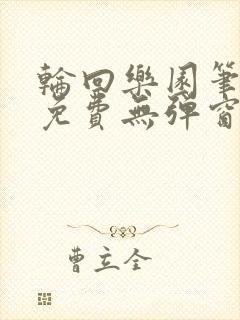 輪回樂園筆
免費無彈窗
曹立全